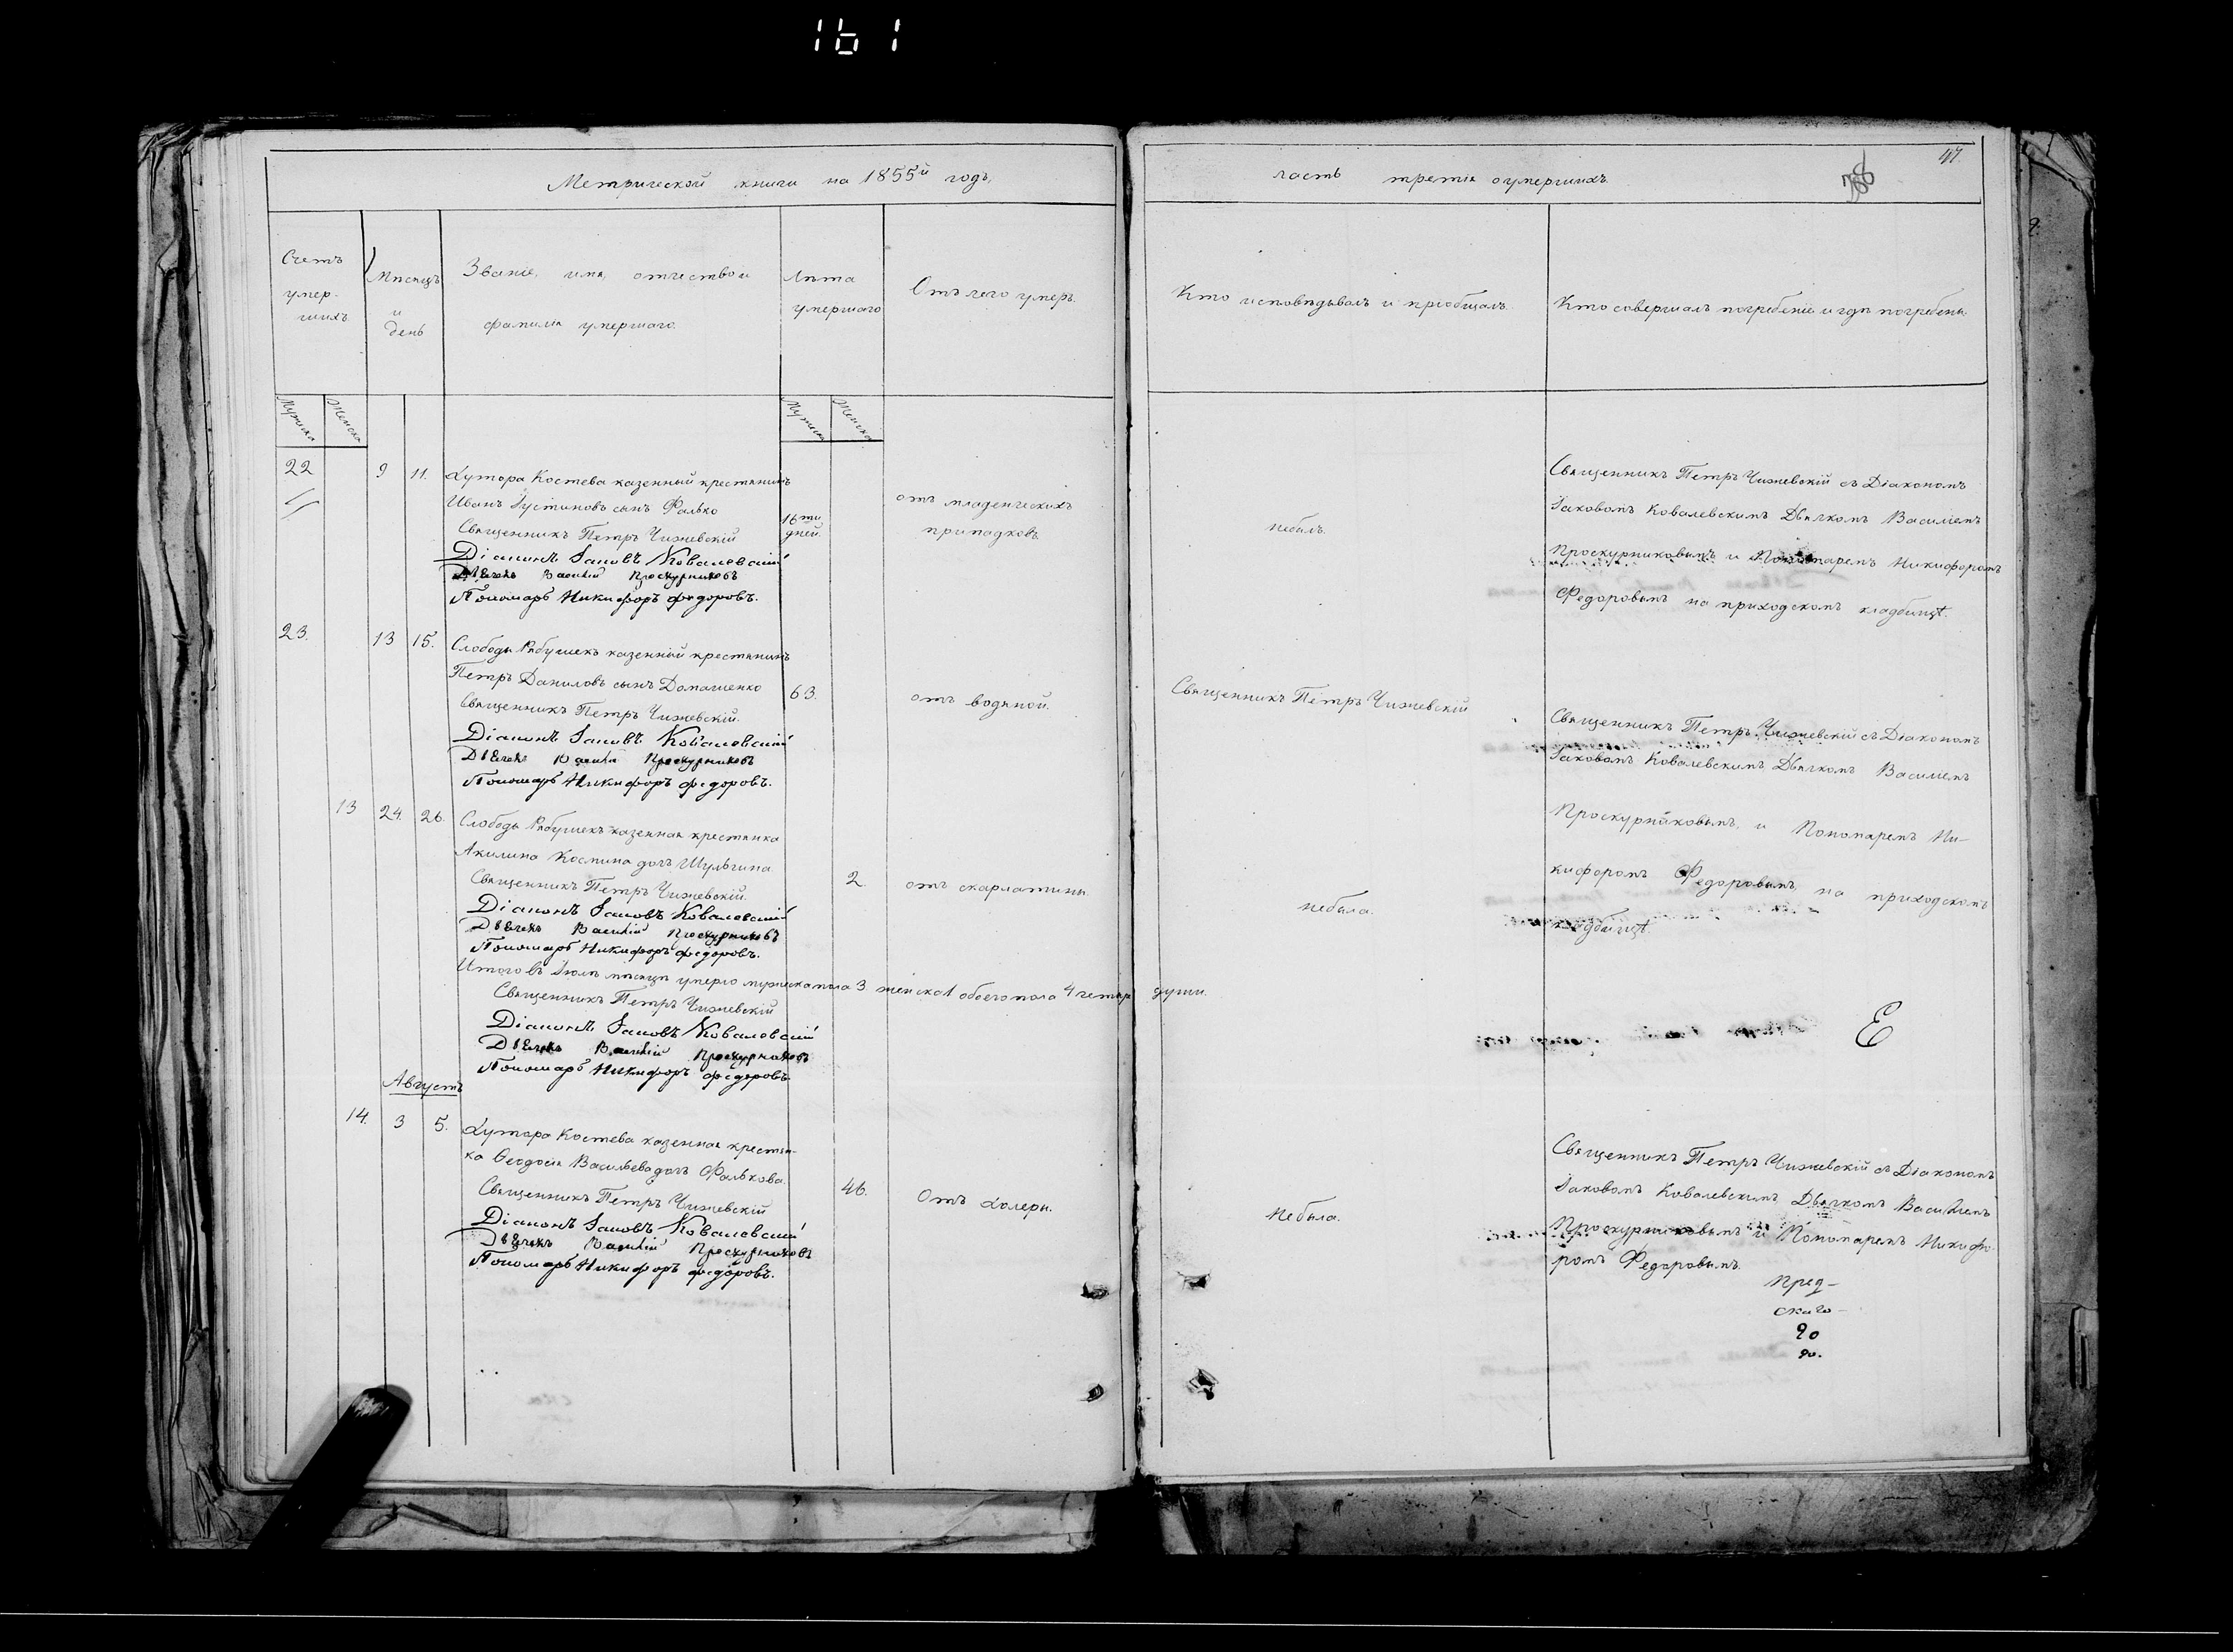 161
Метрической книги на 1855й годъ,
Счетъ умер- шихъ
Мѣсяцъ и день
Званіе, имя, отчество и
фамилія умершаго.
Лѣта
умершаго
Отъ чего умеръ.
Мужеска Женска
Мужеска Женска
22 9 11. Хутора Костева казенный крестянинъ
Иванъ Іустиновъ сынъ Фалько
16ти дней.
отъ младенческихъ
припадковъ
Священникъ Петръ Чижевскій
Діаконъ Іаковъ Ковалевскій
Дьячекъ Василій Проскурниковъ
Пономарь Никифоръ Федоровъ.
23. 13 15. Слободы Рябушекъ казенный крестянинъ
Петръ Даниловъ сынъ Домашенко
63.
отъ водяной.
Священникъ Петръ Чижевскій.
Діаконъ Іаковъ Ковалевскій
Дьячекъ Василій Проскурниковъ
Пономарь Никифоръ Федоровъ.
13 24. 26. Слободы Рябушекъ казенная крестянка
Акилина Космина дочь Шульгина
2. отъ скарлатины.
Священникъ Петръ Чижевскій.
Діаконъ Іаковъ Ковалевскій
Дьячекъ Василій Проскурниковъ
Пономарь Никифоръ Федоровъ.
Итого въ Іюлѣ мѣсяцѣ умерло мужеска пола 3 женска 1 обоего пола 4 четыр души.
Священникъ Петръ Чижевскій
Діаконъ Іаковъ Ковалевскій
Дьячекъ Василій Проскурниковъ
Пономарь Никифоръ Федоровъ.
Августъ
14. 3 5. Хутора Костева казенная крестян-
ка Ѳеодосія Васильева дочь Фалькова.
46. Отъ холеры.
Священникъ Петръ Чижевскій
Діаконъ Іаковъ Ковалевскій
Дьячекъ Василій Проскурниковъ
Пономарь Никифоръ Федоровъ.
часть третія о умершихъ.
47.
Кто исповѣдывалъ и пріобщалъ.
Кто совершалъ погребеніе и гдѣ погребены.
небылъ.
Священникъ Петръ Чижевскій съ Діакономъ
Іаковомъ Ковалевскимъ Дьячкомъ Василіемъ
Проскурниковымъ и Пономаремъ Никифоромъ
Федоровымъ на приходскомъ кладбищѣ.
Священникъ Петръ Чижевскій
Священникъ Петръ Чижевскій съ Діакономъ
Іаковомъ Ковалевскимъ Дьячкомъ Василіемъ
Проскурниковымъ, и Пономаремъ Ни-
кифоромъ Федоровымъ на приходскомъ
кладбищѣ.
небыла.
Небыла.
Священникъ Петръ Чижевскій съ Діакономъ
Іаковомъ Ковалевскимъ Дьячкомъ Василіемъ
Проскурниковымъ и Пономаремъ Никифо-
ромъ Федоровымъ.